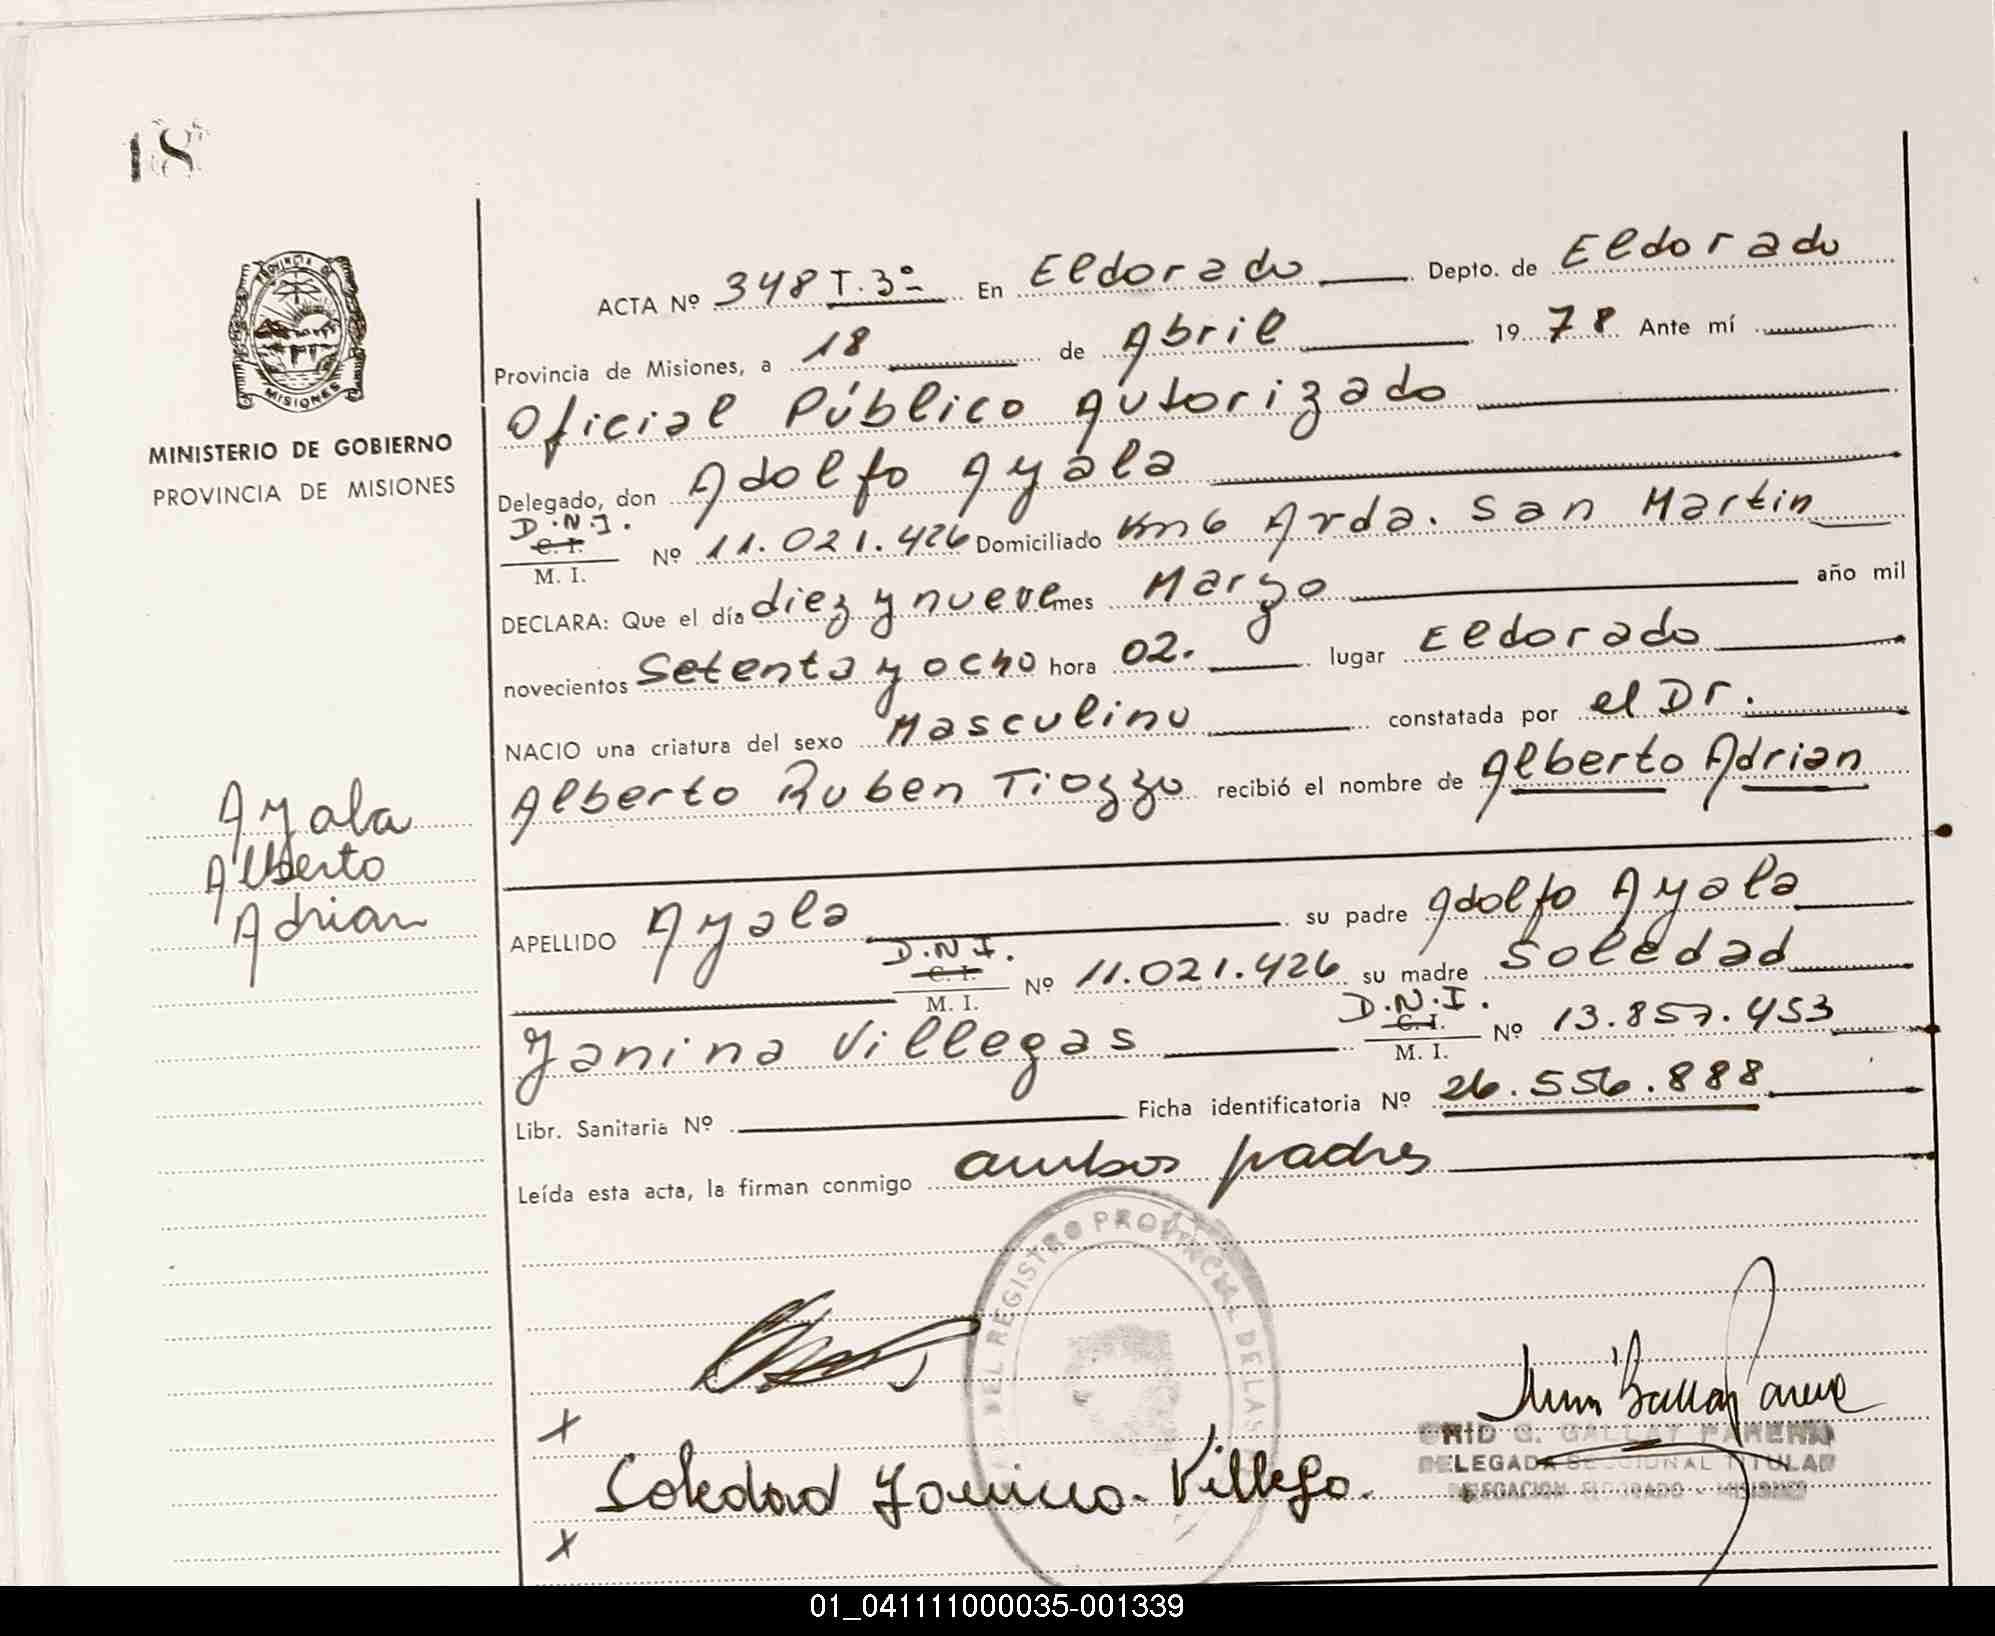 18
PROVINCIA DE
MISIONES
MINISTERIO DE GOBIERNO
PROVINCIA DE MISIONES
Ayala
Alberto
Adrian
ACTA Nº 348 T. 3º En Eldorado Depto. de Eldorado
Provincia de Misiones, a 18 de Abril 1978 Ante mí
Oficial Público Autorizado
Delegado, don Adolfo Ayala
D.N.I.
C. I.
M. I. Nº 11.021.426 Domiciliado Km 6 Avda. San Martin
DECLARA: Que el día diez y nueve mes Marzo año mil
novecientos Setenta y ocho hora 02. lugar Eldorado
NACIO una criatura del sexo Masculino constatada por el Dr.
Alberto Ruben Tiozzo recibió el nombre de Alberto Adrian
APELLIDO Ayala su padre Adolfo Ayala
D.N.I.
C. I.
M. I. Nº 11.021.426 su madre Soledad
Yanina Villegas D.N.I.
C. I.
M. I. Nº 13.857.453
Libr. Sanitaria Nº Ficha identificatoria Nº 26.556.888
Leída esta acta, la firman conmigo ambos padres
DEL REGISTRO PROVINCIAL DE LAS
X
Soledad Yanina Villega.
X
G. GALLAY
DELEGADA SECCIONAL TITULAR
DELEGACION ELDORADO - MISIONES
01_041111000035-001339